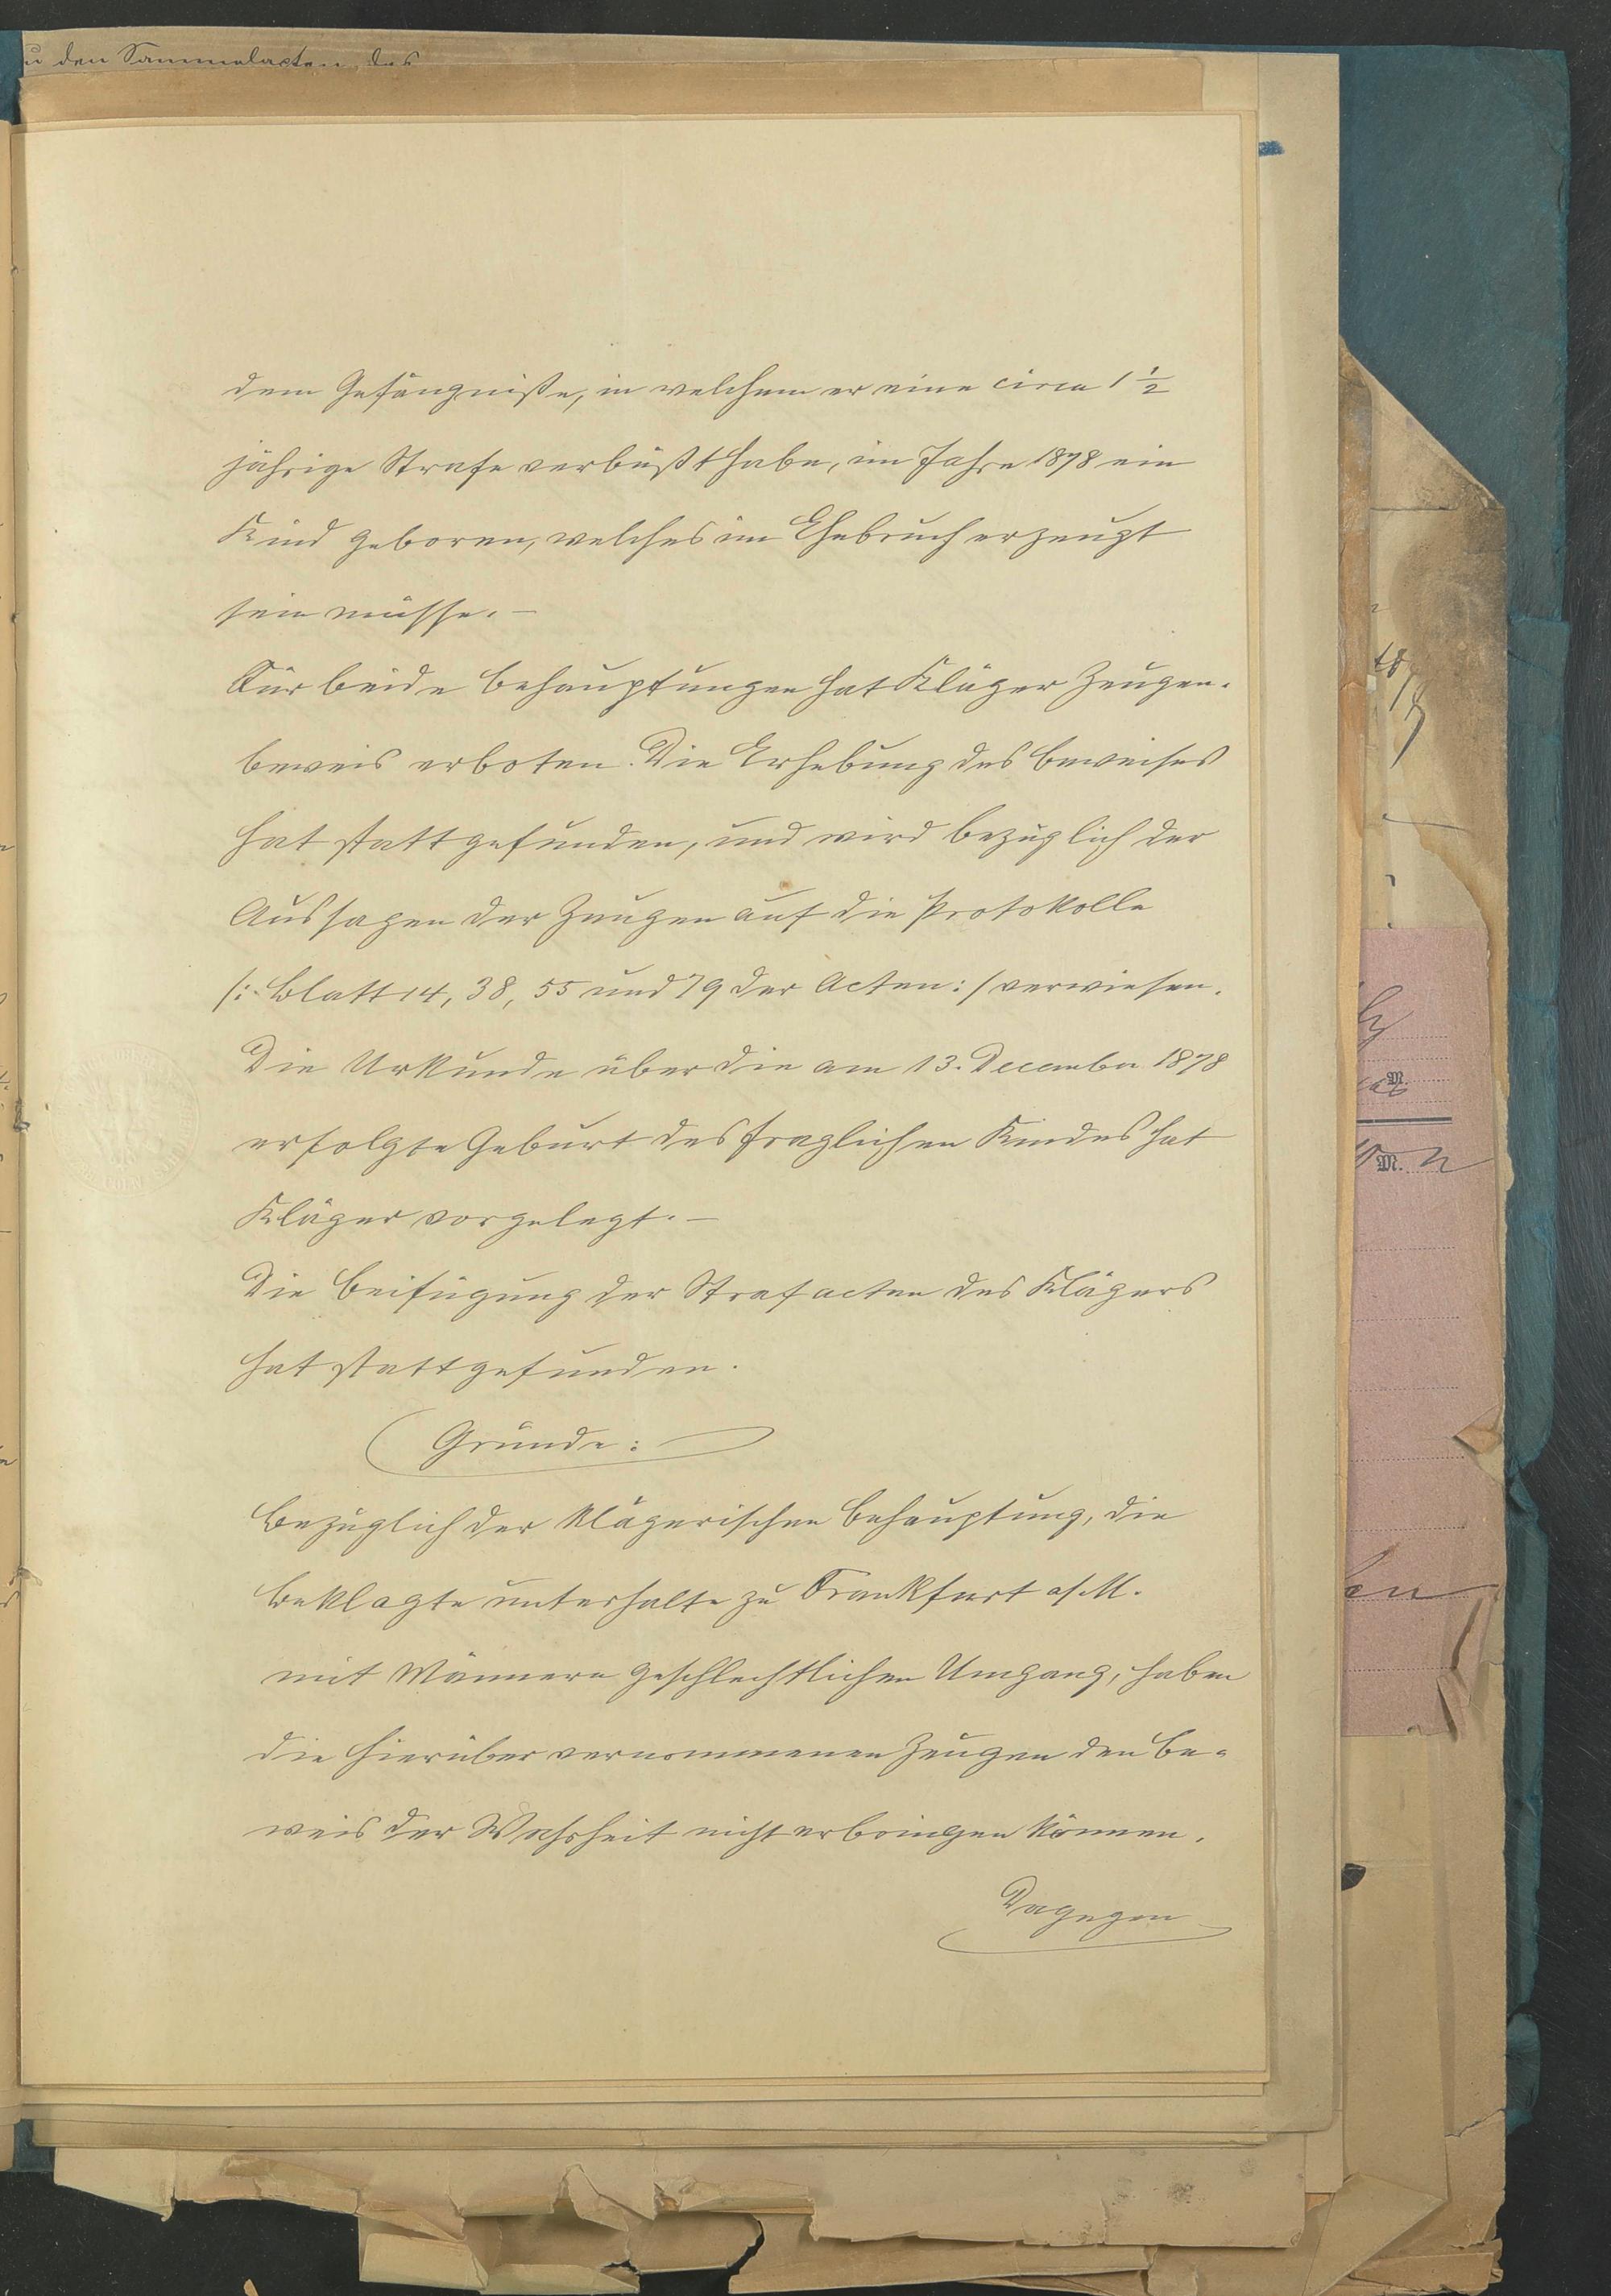 den Sammelacten des
dem Gefängniße, in welchem er eine circa 1 1/2
jährige Strafe verbüßt habe, im Jahre 1878 ein
Kind geboren, welches im Ehebruch erzeugt
sein müsse. —
Für beide Behauptungen hat Kläger Zeugen-
beweis erboten. Die Erhebung des Beweises
hat stattgefunden, und wird bezüglich der
Aussagen der Zeugen auf die Protokolle
/: Blatt 14, 38, 55 und 79 der Acten :/ verwiesen.
Die Urkunde über die am 13. December 1878
erfolgte Geburt des fraglichen Kindes hat
Kläger vorgelegt. —
Die Beifügung der Strafacten des Klägers
hat stattgefunden.
Gründe:
Bezüglich der klägerischen Behauptung, die
Beklagte unterhalte zu Frankfurt a/M.
mit Männern geschlechtlichen Umgang, haben
die hierüber vernommenen Zeugen den Be-
weis der Wahrheit nicht erbringen können.
Dagegen
M.
M.